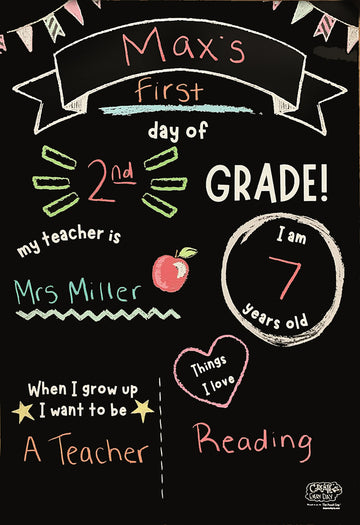 Max's
First
day of
2nd
GRADE!
my teacher is
Mrs Miller
I am
7
years old
Things
I love
When I grow up
I want to be
A Teacher
Reading